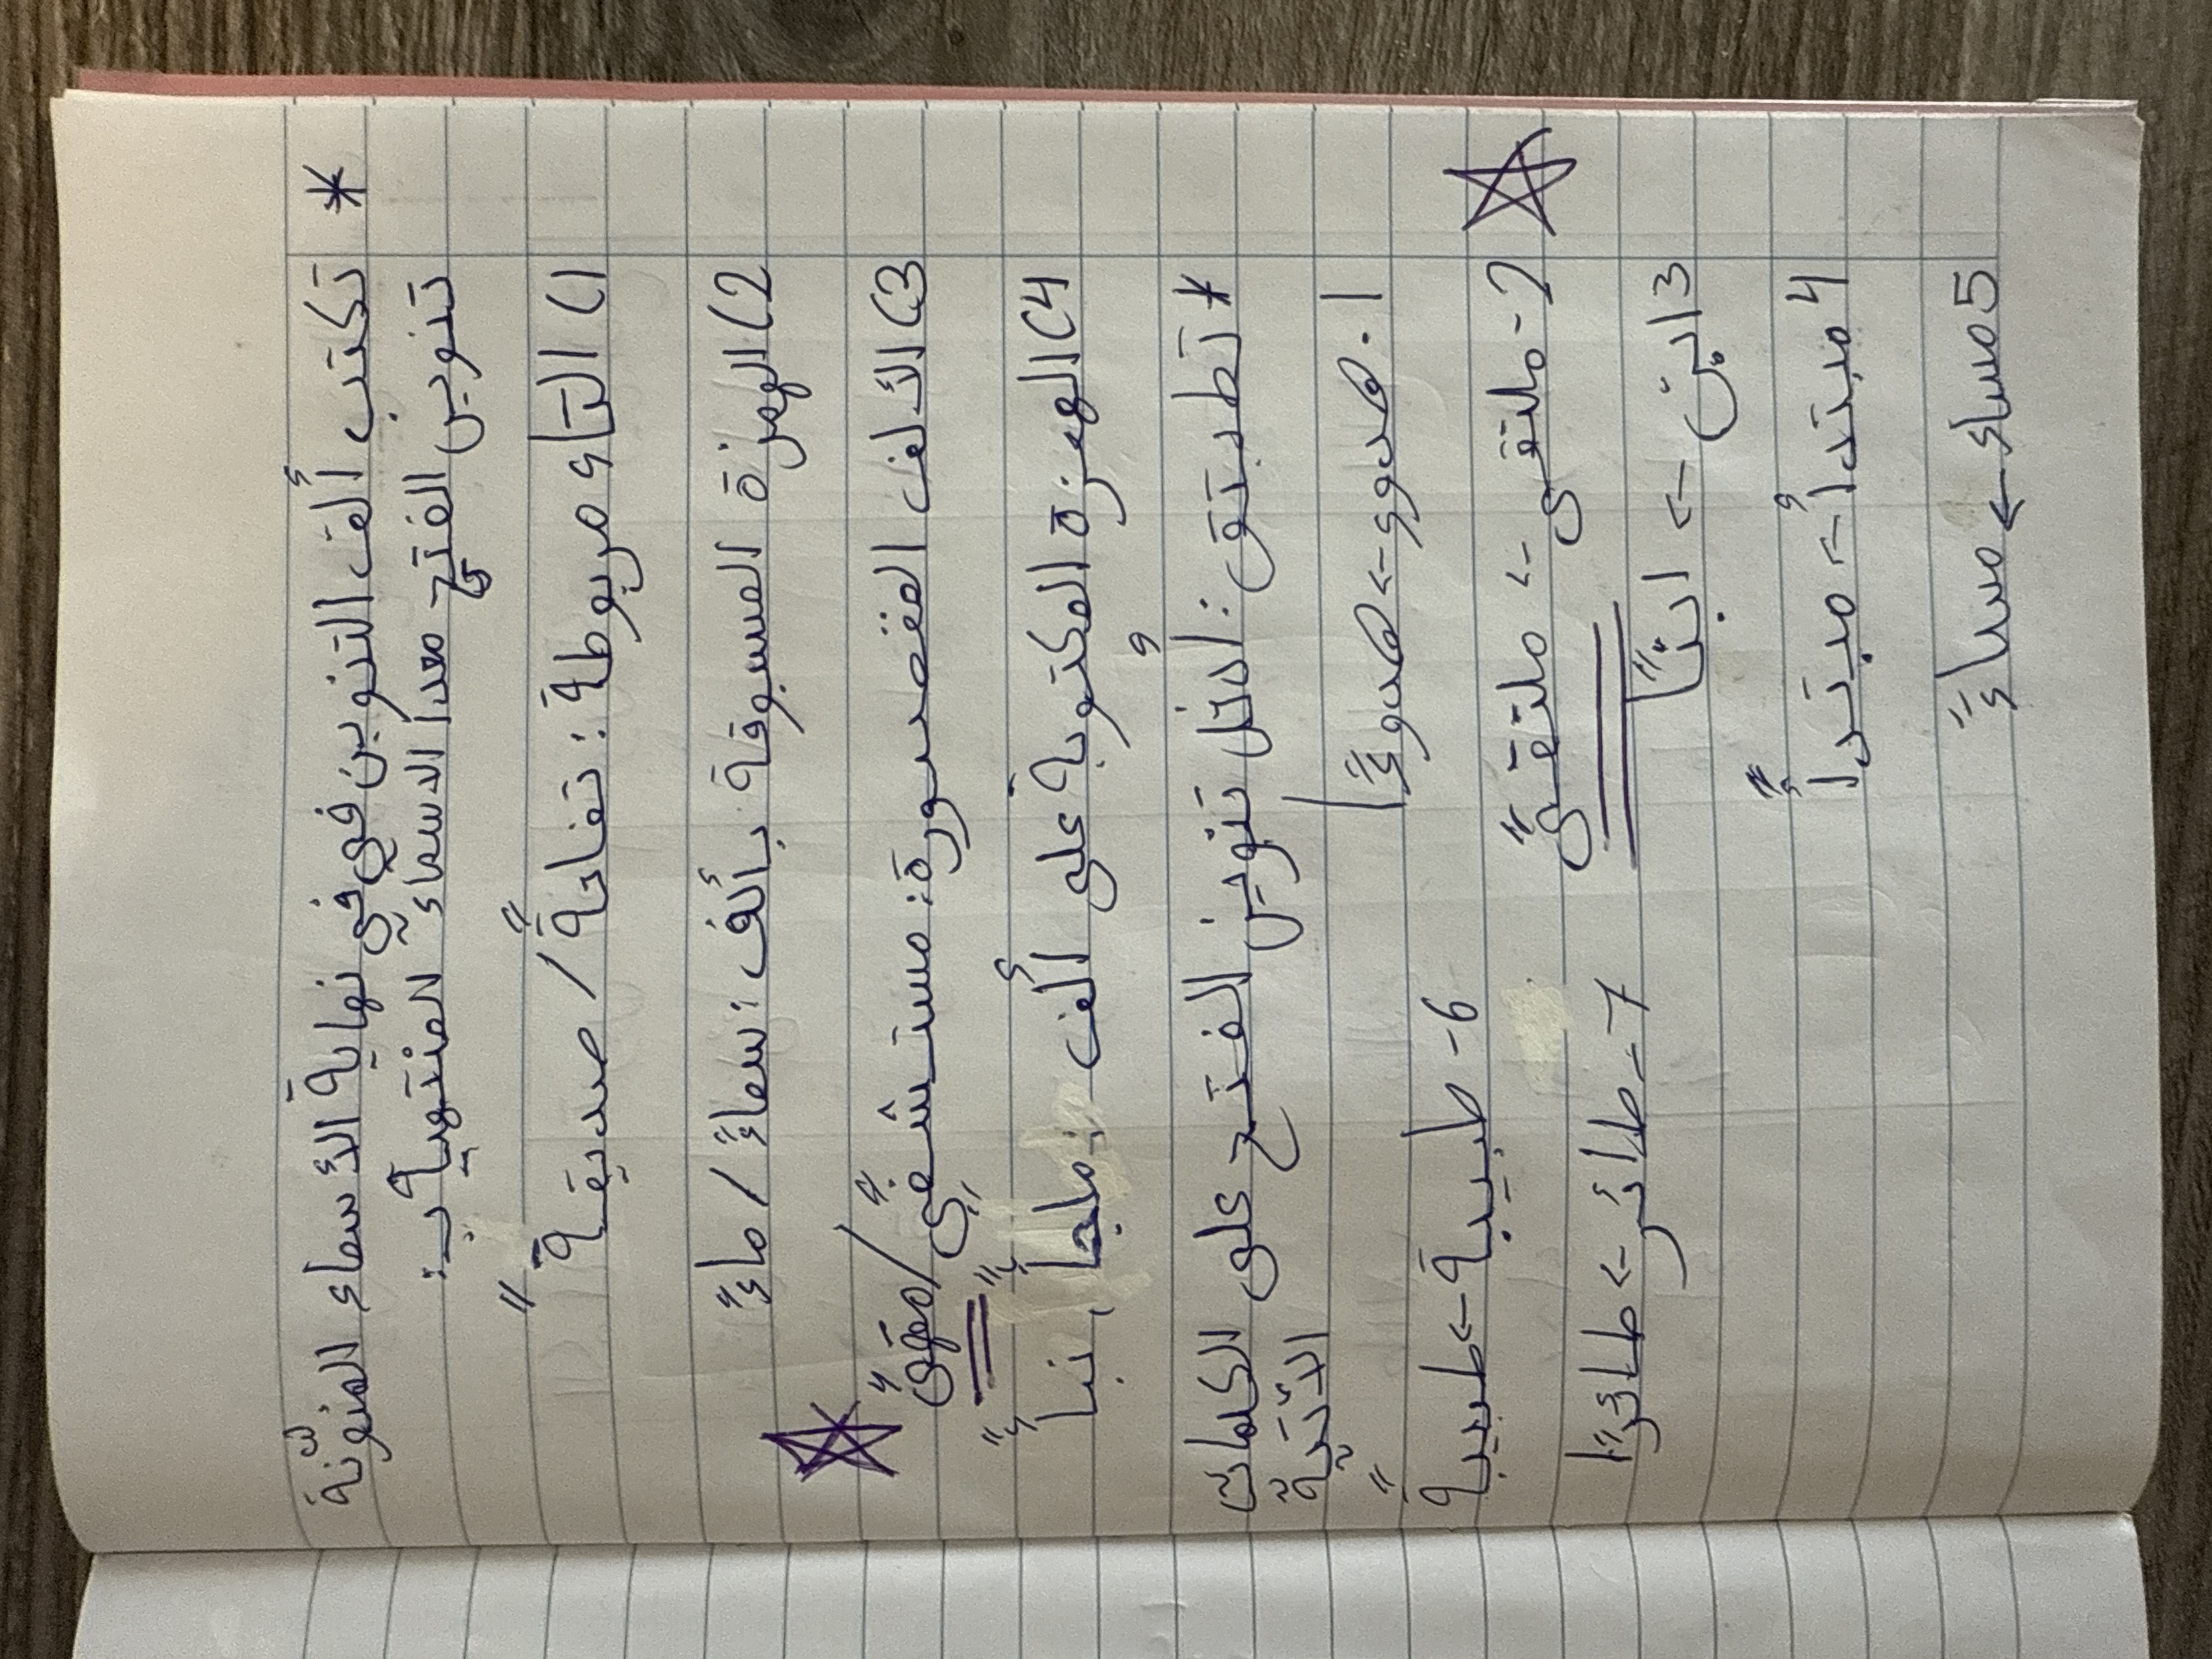 * تكتب ألف التنوين في في نهاية الأسماء المنونة
تنوين الفتح معدا الاسماء المنتهية ب:
1) التاء مربوطة: تفاحةً / صديقةً
2) الهمزة المسبوقة بألف: سماءً / ماءً
3) الألف المقصورة: مستشفىً / مقهىً
4) الهمزة المكتوبة على ألف: ملجأً، نبأً
* تطبتق: ادخل تنوين الفتح على الكلمات
الآتية
1. هدوء -> هدوءًا
6- طبيبة -> طبيبةً
2- ملتقى -> ملتقىً
7- طائر -> طائرًا
3 ابن -> ابنًا
4 مبتدأ -> مبتدأً
5 مساء -> مساءً